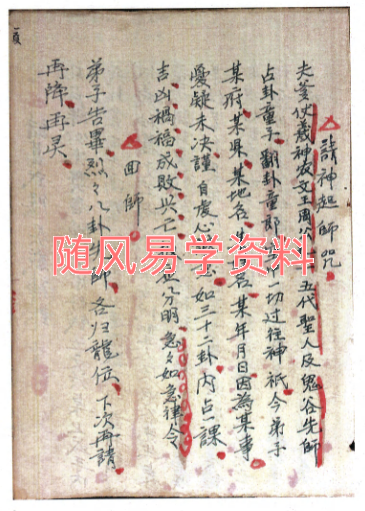 請神起師咒
夫爻伏羲神農文王周公 五代聖人及鬼谷先師
占卦童子 翻卦童郎 一切过往神祇今弟子
某府某县某地名 某年月日因為某事
憂疑未决謹 自虔心 如三十二卦内占一課
吉凶禍福成敗兴亡 分明 急々如急律令
回師
弟子告畢烈々八卦 師各归龍位 下次再請
再降再灵
随风易学资料